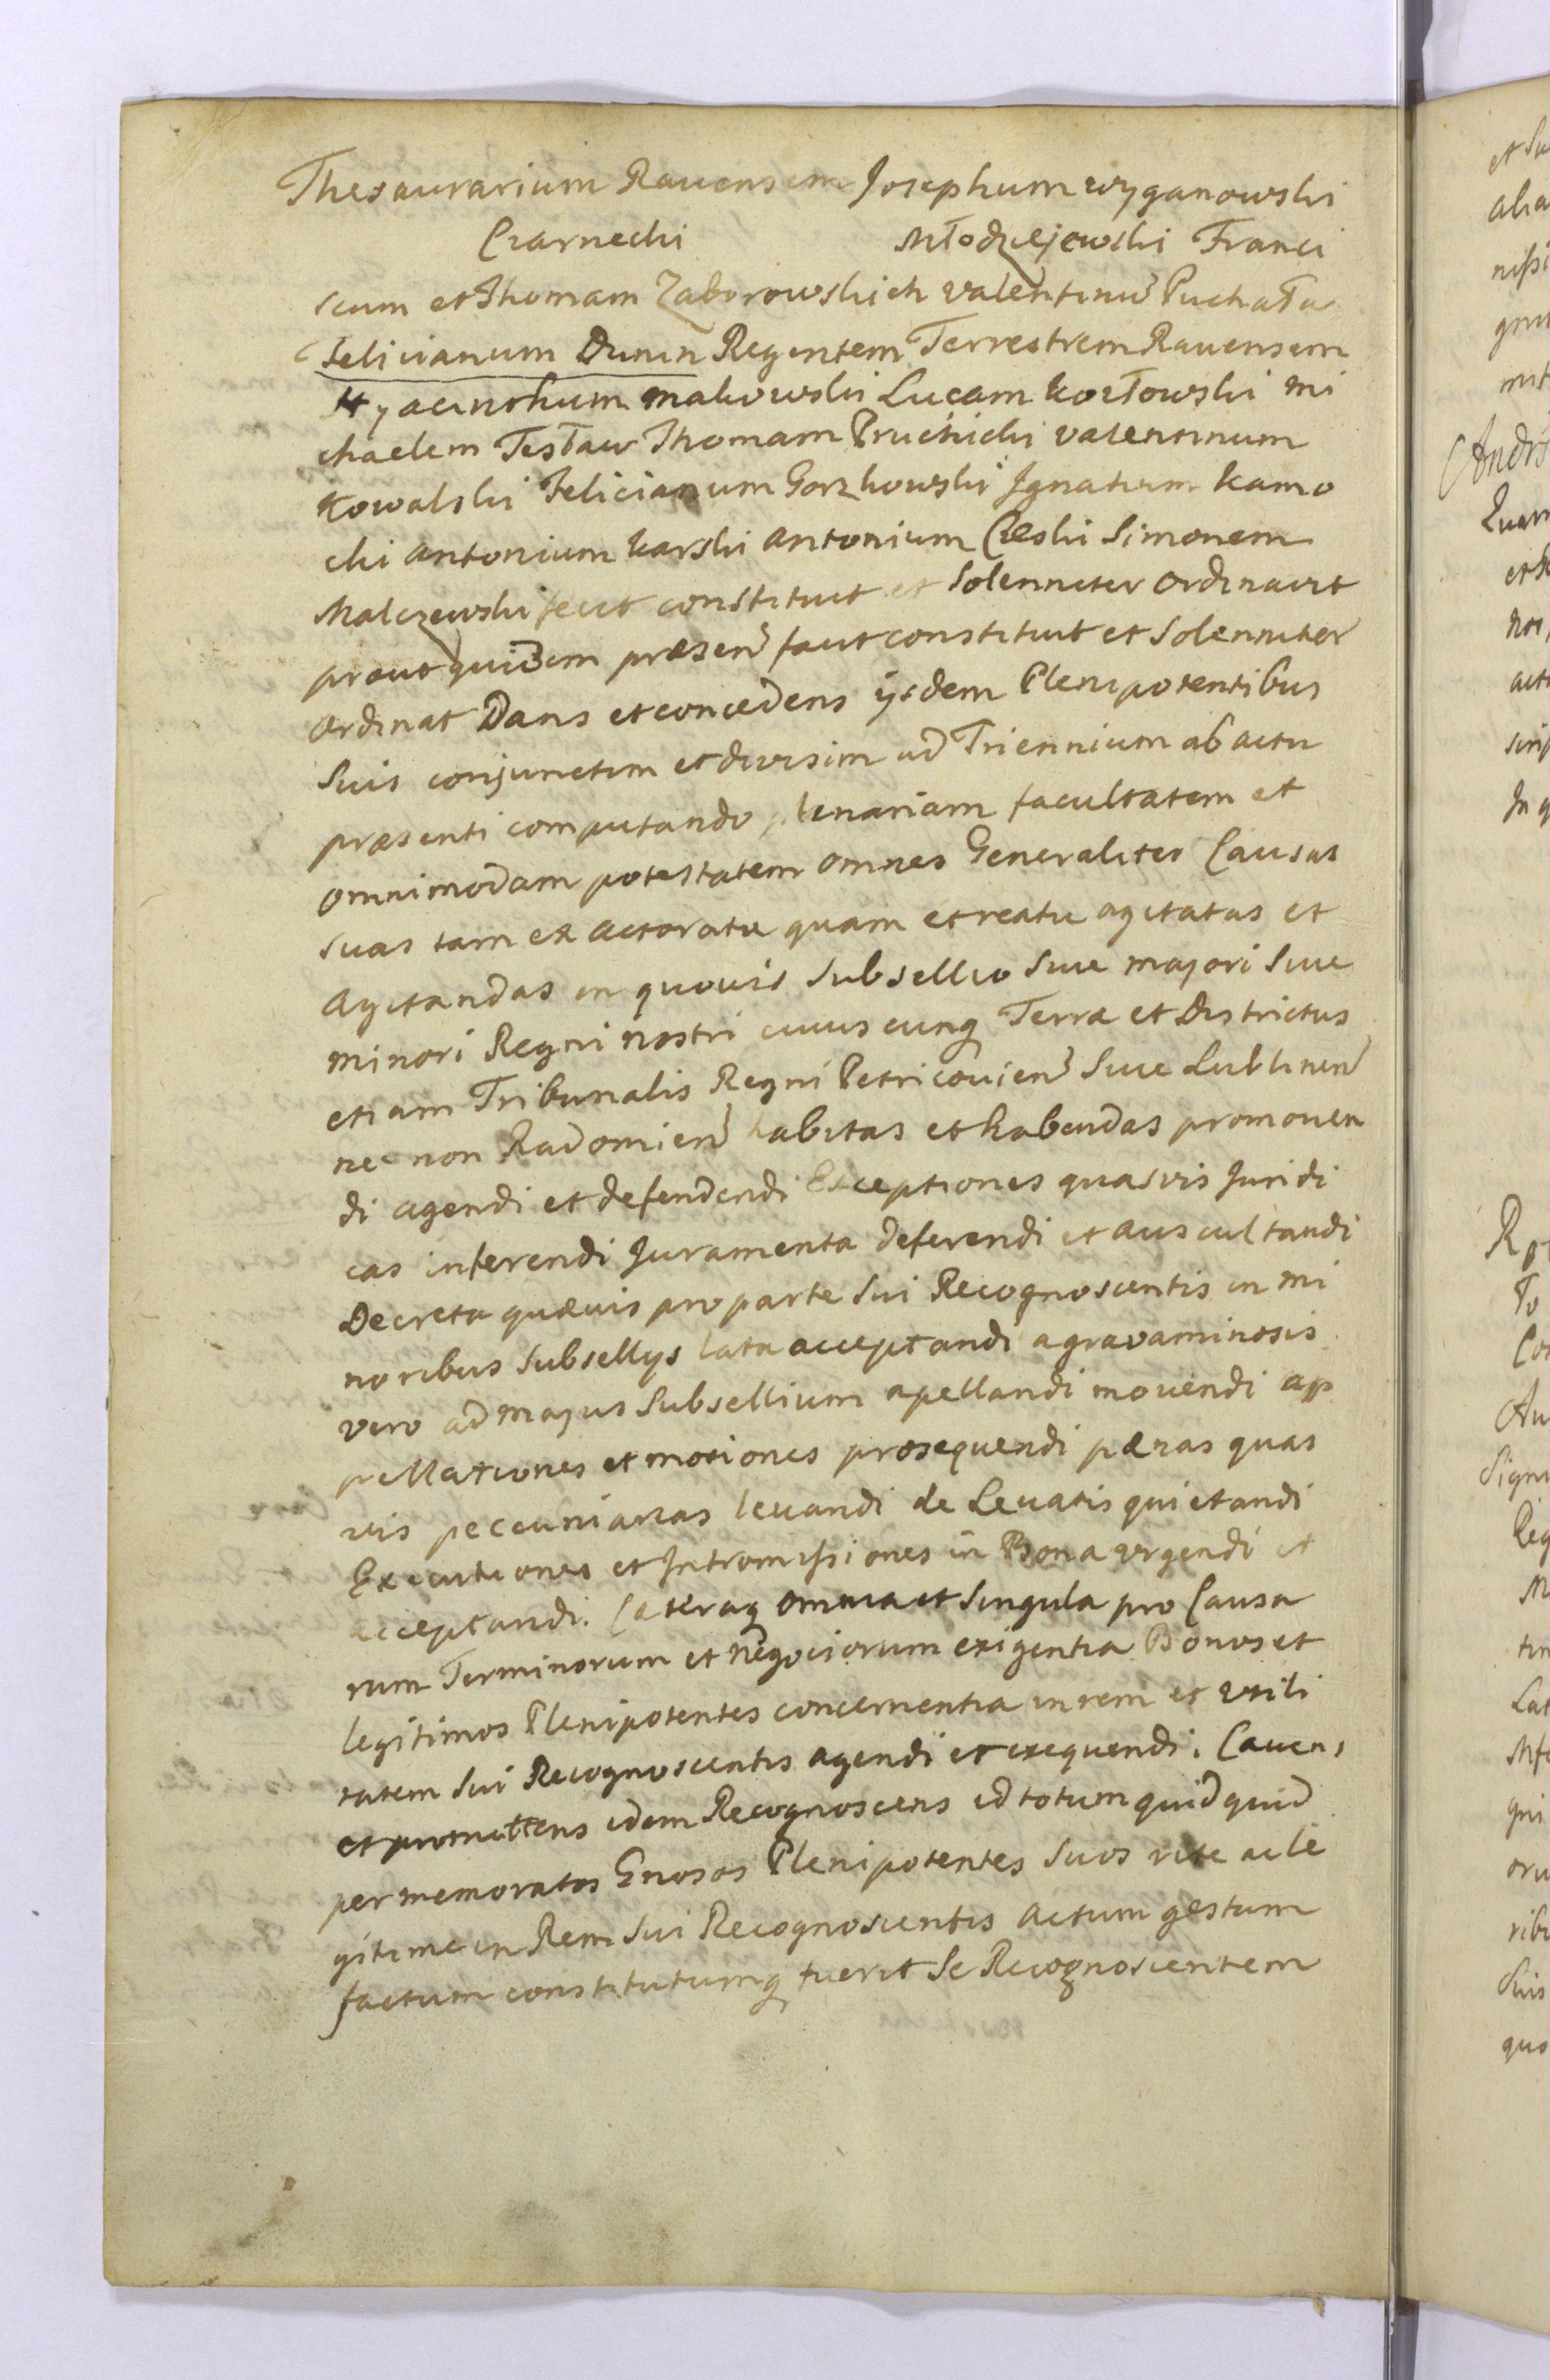 Thesaurarium Ravensem Josephum wyganowski
Czarnecki Młodziejowski Franci
scum et Thomam Zaborowskich valentinũ Puchała
Felicianum Dunin Regentem Terrestrem Ravensem
Hyacinthum makowski Lucam kozłowski mi
chaelem Tesław Thomam Pruchicki valentinum
Kowalski Felicianum Gorzkowski Ignatium kamo
cki antonium karski antonium Cieski Simonem
Malczewski fecit constituit et Solenniter ordinavit
prout quidem præsen̄ facit constituit et Solenniter
ordinat Dans et concedens ijsdem Plenipotentibus
Suis conjunctim et divisim ad Triennium ab actu
præsenti computando plenariam facultatem et
omnimodam potestatem omnes Generaliter Causas
suas tam ex actoratu quam et reatu agitatas et
agitandas in quovis Subsellio Sive majori Sive
minori Regni nostri cuiuscunq Terræ et Districtus
etiam Tribunalis Regni Petricovien̄ Sive Lublinen̄
nec non Radomien̄ habitas et habendas promoven
di agendi et defendendi Exceptiones quasvis Juridi
cas inferendi Juramenta deferendi et auscultandi
Decreta quævis pro parte Sui Recognoscentis in mi
noribus Subsellys lata acceptandi agravaminosis
vero ad majus Subsellium apellandi movendi ap
pellationes et motiones prosequendi pænas quas
vis peccuniarias levandi de Levatis quietandi
Executiones et Intromissiones in Bona urgendi et
acceptandi. Cæteraq omnia et Singula pro Causa
rum Terminorum et negociorum exigentia Bonos et
legitimos Plenipotentes concernentia in rem et utili
tatem Sui Recognoscentis agendi et exequendi. Cavens
et promittens idem Recognoscens id totum quidquid
per memoratos Gnosos Plenipotentes Suos rite ac le
gitime in Rem Sui Recognoscentis actum gestum
factum constitutumq fuerit Se Recognoscentem